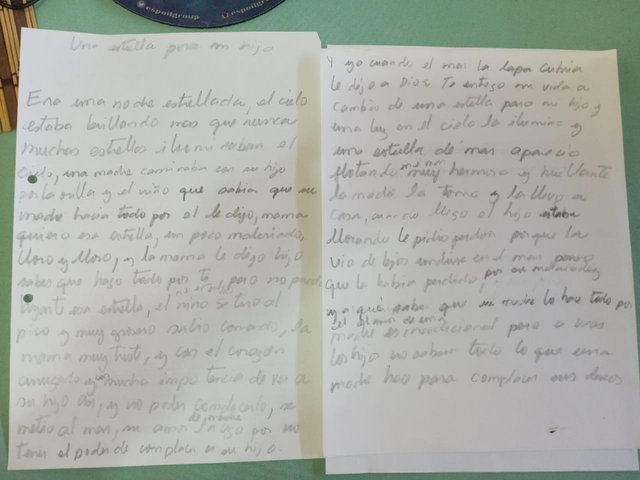 espoilgroup
espoilgroup
Una estrella para mi hijo
Era una noche estrellada, el cielo
estaba brillando mas que nunca
muchas estrellas iluminaban el
cielo, una madre caminaba con su hijo
por la orilla y el niño que sabia que su
madre hacia todo por el le dijo, mama
quiero esa estrella, un poco malcriado,
lloro y lloro, y la mama le dijo hijo
sabes que hago todo por ti pero no puedo
esa estrella, el niño se tiro al
piso y muy grosero salio corriendo, la
mama muy triste, y con el corazon
arrugado y mucha impotencia de ver a
su hijo asi, y no poder complacerlo, se
metio al mar, su amor de madre la por no
tener el poder de complacer a su hijo.
Y ya cuando el mar la tapa cubria
le dijo a Dios Te entrego mi vida a
cambio de una estrella para mi hijo y
una luz en el cielo la ilumino y
una estrella de mar aparecio
flotando muy hermosa y brillante
la madre la tomo y la llevo a
casa, cuando llego el hijo estaba
llorando le pidio perdon porque la
vio de lejos undirse en el mar penso
que la habia perdido, por su malcriadez
ya que sabe que su madre lo hace todo por
el amor de una
madre es incondicional pero a veces
los hijos no saben todo lo que una
madre hace para complacer sus deseos